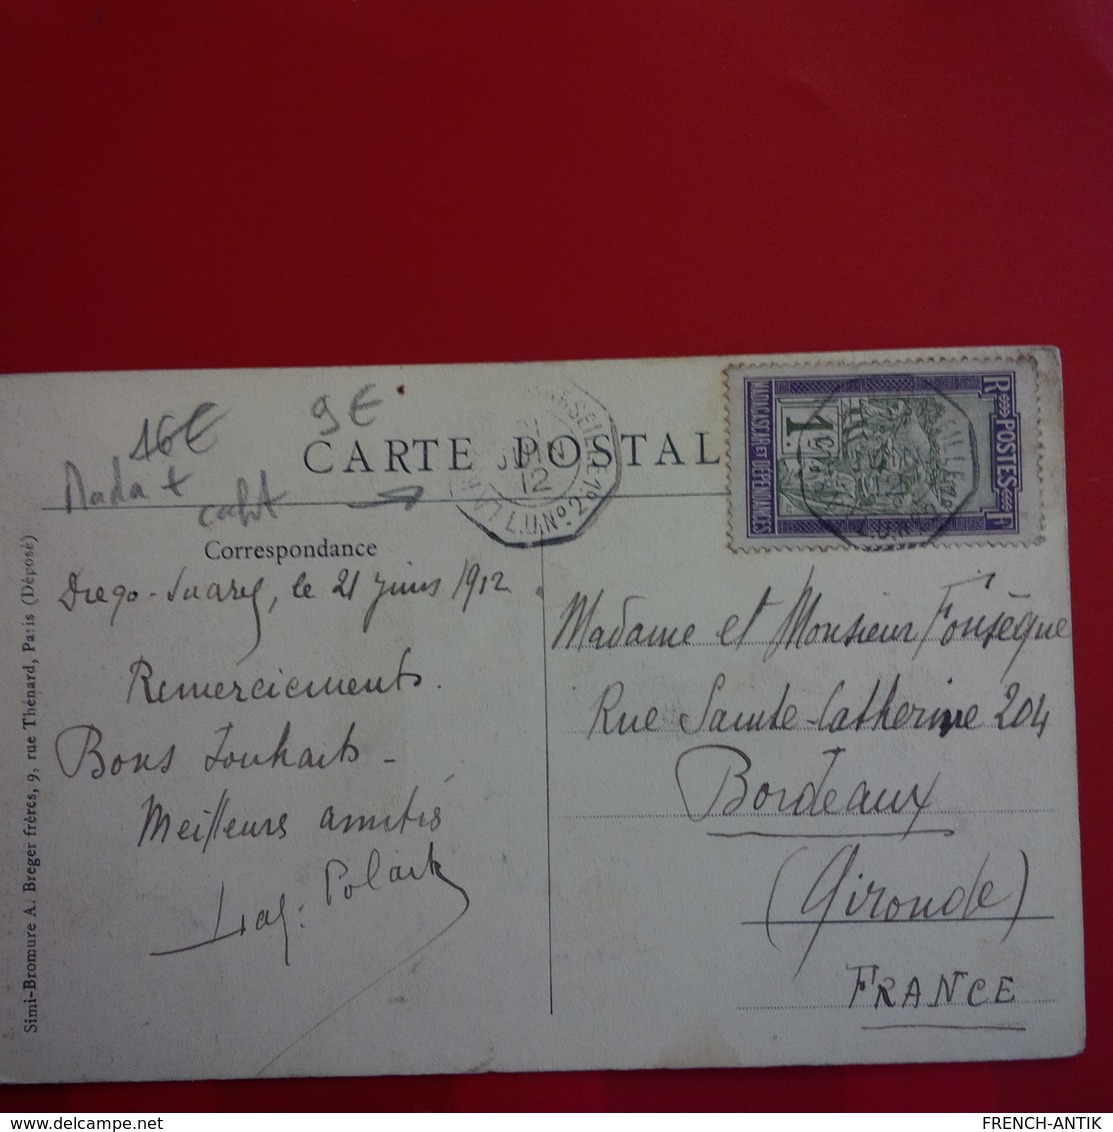 16€
9€
Mada +
CARTE POSTALE
Correspondance
Diego-Suarez, le 21 juin 1912
Remerciements.
Bons Souhaits -
Meilleurs amitiés
Polack
Madame et Monsieur Fonsèque
Rue Sainte-Catherine 204
Bordeaux
(Gironde)
FRANCE
Simi-Bromure A. Breger frères, 9, rue Thénard, Paris (Déposé)
MADAGASCAR ET DÉPENDANCES
1c
POSTES
RF
JUIN
12
L.U. Nº2
FRENCH-ANTIK